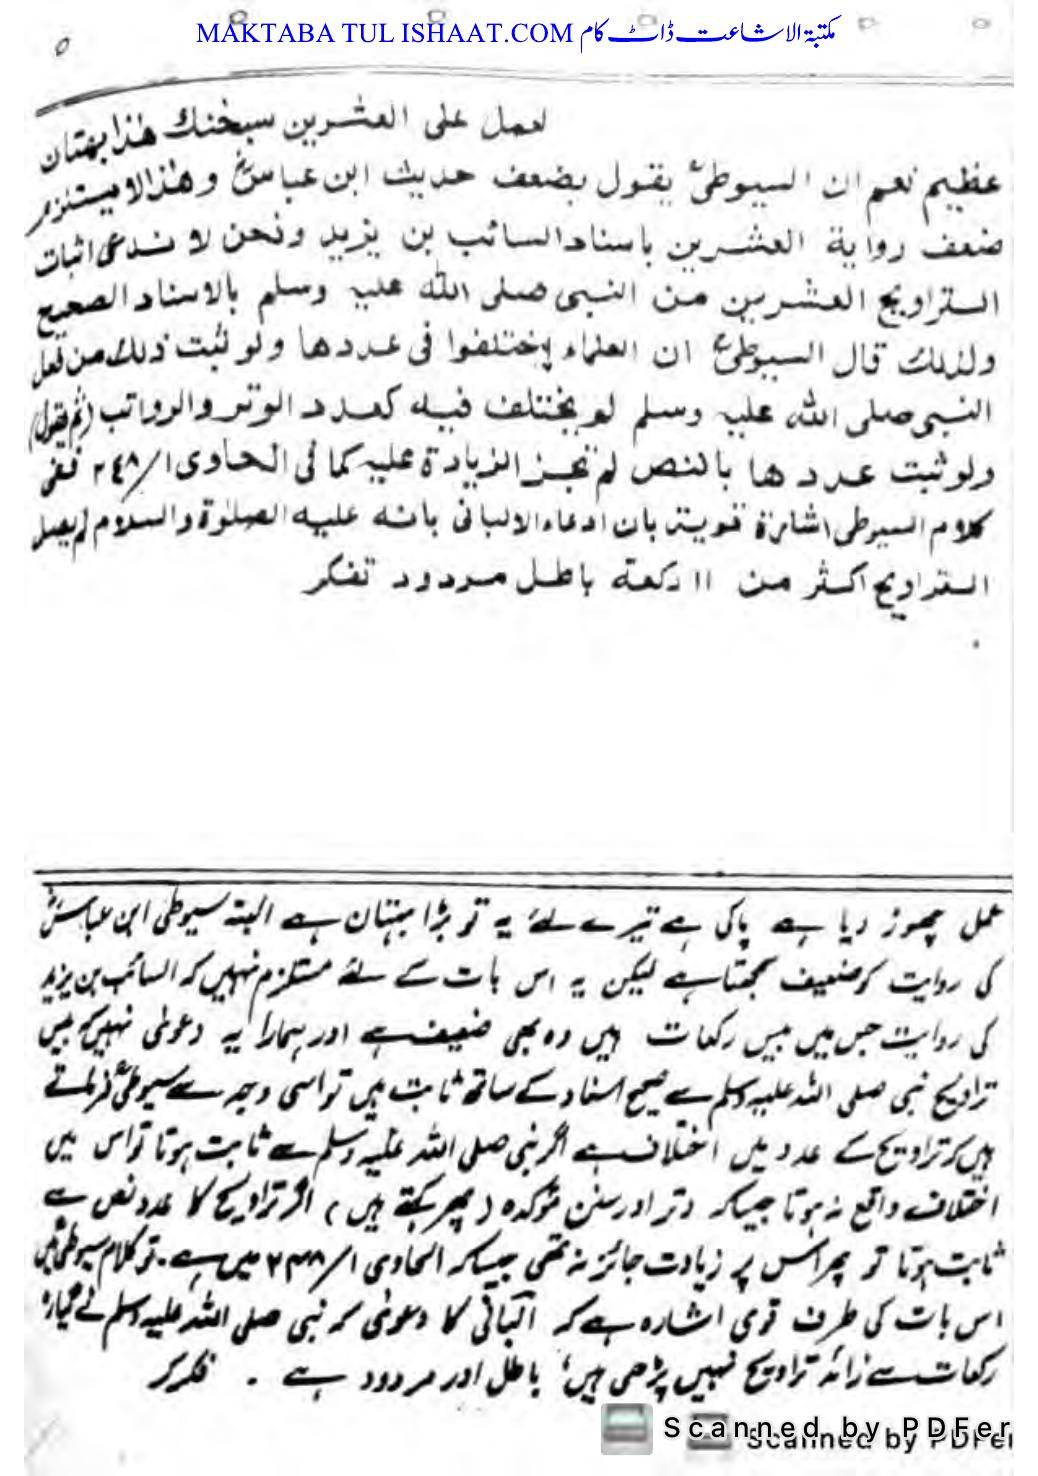 MAKTABA TUL ISHAAT.COM مکتبۃ الاشاعت ڈاٹ کام
لعمل على العشرين سبحنك هذا بهتان
عظيم نعم ان السيوطیؒ يقول بضعف حديث ابن عباسؓ وهذا لا يستلزم
ضعف رواية العشرين باسناد السائب بن يزيد ونحن لا ندعی اثبات
التراويح العشرين من النبی صلی الله عليه وسلم بالاسناد الصحيح
ولذلك قال السيوطیؒ ان العلماء اختلفوا فی عددها ولو ثبت ذلك من فعل
النبی صلی الله عليه وسلم لم يختلف فيه كعدد الوتر والرواتب (ثم يقول)
ولو ثبت عددها بالنص لم تجز الزيادة عليه كما فی الحاوی ۱/۳٤۸ ففی
كلام السيوطی اشارة قوية بان ادعاء الالبانی بانه عليه الصلوة والسلام لم يصل
التراويح اكثر من ۱۱ ركعة باطل مردود تفكر
عمل چھوڑ دیا ہے پاکی ہے تیرے لئے یہ تو بڑا بہتان ہے البتہ سیوطی ابن عباسؓ
کی روایت کو ضعیف سمجھتا ہے لیکن یہ اس بات کے لئے مستلزم نہیں کہ السائب بن یزید
کی روایت جس میں بیس رکعات ہیں وہ بھی ضعیف ہے اور ہمارا یہ دعویٰ نہیں کہ بیس
تراویح نبی صلی اللہ علیہ وسلم سے صحیح اسناد کے ساتھ ثابت ہیں تو اسی وجہ سے سیوطیؒ فرماتے
ہیں کہ تراویح کے عدد میں اختلاف ہے اگر نبی صلی اللہ علیہ وسلم سے ثابت ہوتا تو اس میں
اختلاف واقع نہ ہوتا جیسا کہ وتر اور سنن مؤکدہ (پھر کہتے ہیں) اگر تراویح کا عدد نص سے
ثابت ہوتا تو پھر اس پر زیادت جائز نہ تھی جیسا کہ الحاوی ۱/۳۴۸ میں ہے۔ تو کلام سیوطیؒ میں
اس بات کی طرف قوی اشارہ ہے کہ البانی کا دعویٰ کہ نبی صلی اللہ علیہ وسلم نے گیارہ
رکعات سے زائد تراویح نہیں پڑھی ہیں، باطل اور مردود ہے ۔ فکر کر
Scanned by PDFer
Scanned by PDFer